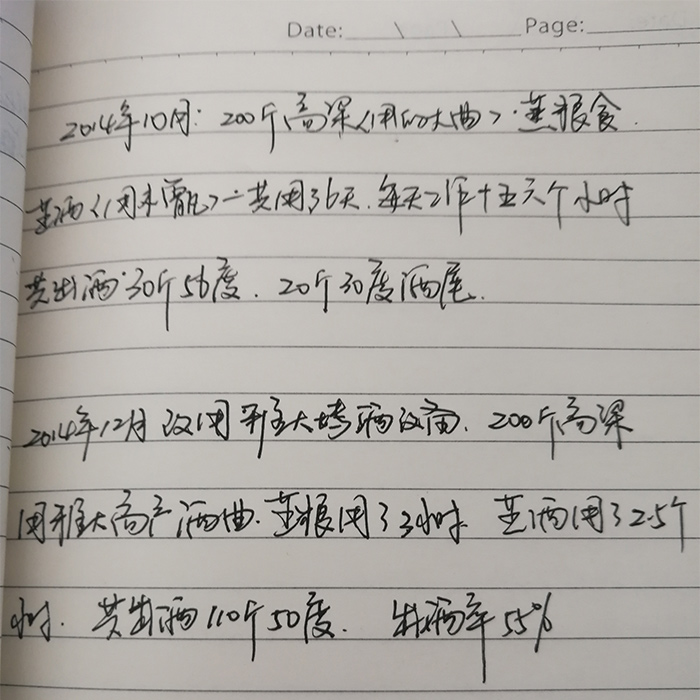 Date: \ \ Page:
2014年10月: 200斤高梁(用的大曲)·蒸粮食.
蒸酒(用木甑)一共用了6天.每天工作十五六个小时
共出酒:30斤56度. 20斤30度酒尾.
2014年12月改用雅大烤酒设备. 200斤高梁
用雅大高产酒曲.蒸粮用了3小时 蒸酒用了2.5个
小时. 共出酒110斤50度. 出酒率55%